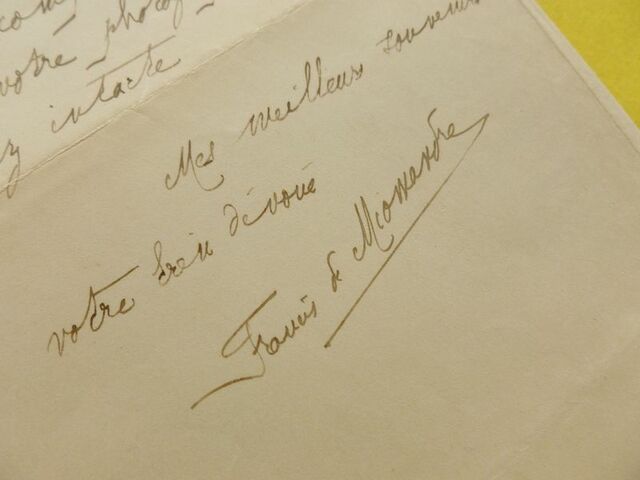 votre photog
intacte
Mes meilleurs souvenirs
votre bien dévoué
Francis de Miomandre